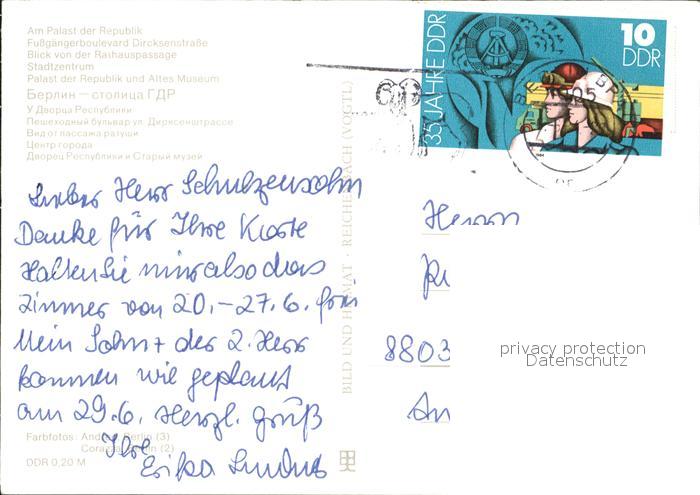 Am Palast der Republik
Fußgängerboulevard Dircksenstraße
Blick von der Rathauspassage
Stadtzentrum
Palast der Republik und Altes Museum
Берлин — столица ГДР
У Дворца Республики
Пешеходный бульвар ул. Дирксенштрассе
Вид от пассажа ратуши
Центр города
Дворец Республики и Старый музей
35 JAHRE DDR
10
DDR
BILD UND HEIMAT · REICHENBACH (VOGTL)
Lieber Herr Schulzensohn
Danke für Ihre Karte
Halten Sie mir also das
Zimmer von 20.–27.6. frei
Mein Sohn + der 2. Herr
kommen wie geplant
am 29.6. Herzl. Gruß
Ihre
Erika
Herrn
8803
privacy protection
Datenschutz
Farbfotos: Berlin (3)
Berlin (2)
DDR 0,20 M